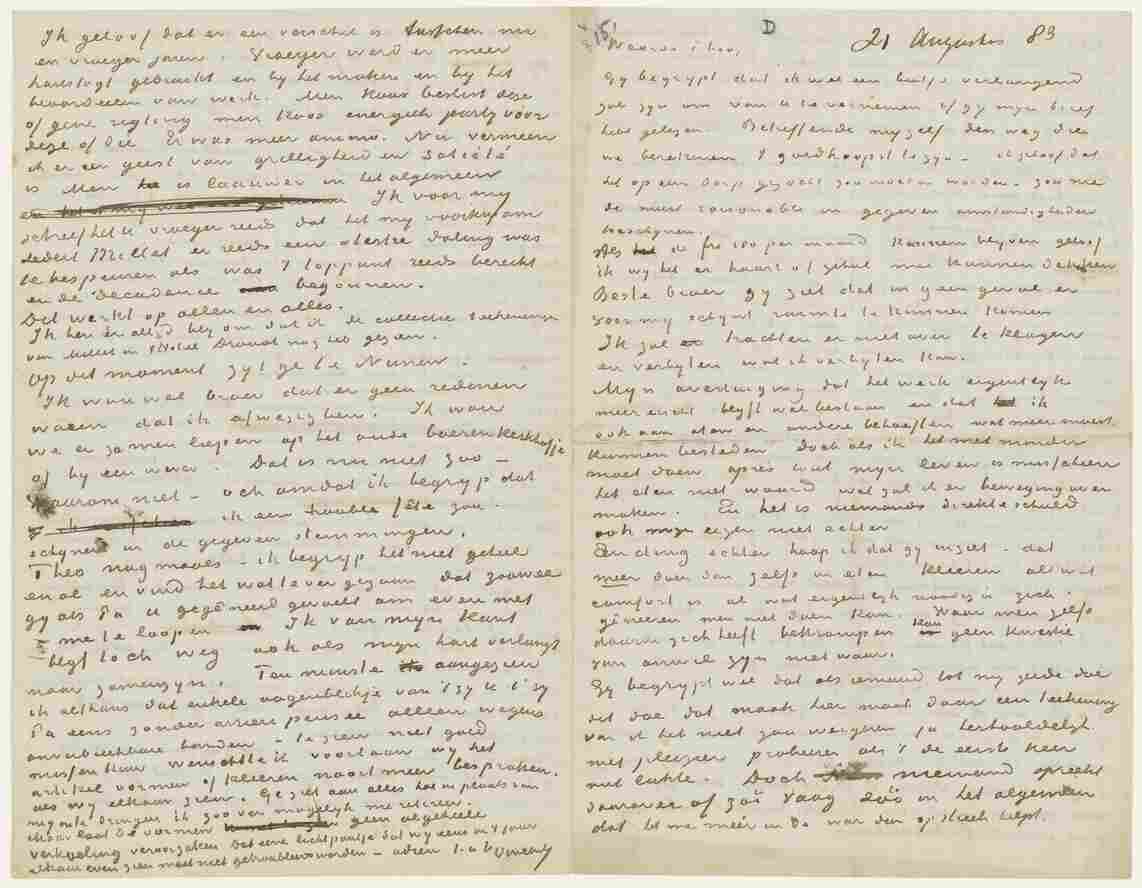 Ik geloof dat er een verschil is tusschen nu
en vroeger jaren. Vroeger werd er meer
hartstogt gebruikt en by het maken en by het
beoordeelen van werk. Men koos beslist deze
of gene rigting men koos energiek party voor
deze of die. Er was meer animo. Nu vermeen
ik er een geest van grilligheid en satiété
is Men is laauwer in het algemeen
Ik voor my
schreef het U vroeger reeds dat het my voorkwam
sedert Millet er reeds een sterke daling was
te bespeuren als was 't toppunt reeds bereikt
en de decadence begonnen.
Dit werkt op allen en alles.
Ik ben er altyd bly om dat ik de collectie teekeningen
van Millet in Hotel Drouot nog heb gezien.
Op dit moment zyt ge te Nunen.
Ik wou wel broer dat er geen redenen
waren dat ik afwezig ben. Ik wou
we er samen liepen op het oude boerenkerkhofje
of by een wever. Dat is nu niet zoo –
Waarom niet – och omdat ik begryp dat
ik een trouble fête zou
schynen in de gegeven stemmingen.
Theo nog maals – ik begryp het niet geheel
en al en vind het wat te ver gegaan dat zoowel
gy als Pa u gegêneerd gevoelt om even met
me te loopen Ik van myn kant
blyf toch weg ook als myn hart verlangt
naar zamenzyn. Ten minste aangezien
ik althans dat enkele oogenblikje van 't zy U 't zy
Pa eens zonder arriere pensée alleen wegens
onverbreekbare banden – te zien niet goed
missen kan wenschte ik voortaan wy het
artikel vormen of kleeren nooit meer bespraken.
als wy elkaar zien. Ge ziet aan alles hoe in plaats van
my op te dringen ik zoo ver mogelyk me retireer.
Maar laat de vormen geen algeheele
verkoeling veroorzaken. Dat eene lichtpuntje dat wy eens in 't jaar
elkaar even zien moet niet getroubleerd worden – adieu t. à t. Vincent
D
21 Augustus 83
Waarde Theo,
Gy begrypt dat ik wel een beetje verlangend
zal zyn om van U te vernemen of gy myn brief
hebt gelezen. Betreffende myzelf den weg dien
we berekenen 't goedkoopst te zyn – ik geloof dat
het op een dorp gezocht zou moeten worden. zou me
de meest raisonable in gegeven omstandigheden
toeschynen.
Als de frs 100 per maand kunnen blyven geloof
ik wy het er haast of geheel mee kunnen dekken
Beste broer gy ziet dat in geen geval er
voor my schynt ruimte te kunnen komen
Ik zal trachten er niet over te klagen
en verbyten wat ik verbyten kan.
Myn overtuiging dat het werk eigentlyk
meer eischt blyft wel bestaan en dat ik
ook aan eten en andere behoeften wat meer moest
kunnen besteden Doch als ik het met minder
moet doen après tout myn leven is misschien
het eten niet waard wat zal ik er beweging over
maken. En het is niemands direkte schuld
ook myn eigen niet echter
Een ding echter hoop ik dat gy inziet – dat
meer doen dan zelfs in eten kleeren al wat
comfort is al wat eigenlyk noodig is zich
gêneeren men niet doen kan. Waar men zelfs
daarin zich heeft bekrompen kan geen kwestie
van onwil zyn niet waar.
Gy begrypt wel dat als iemand tot my zeide doe
dit doe dat maak hier maak daar een teekening
van ik het niet zou weigeren ja herhaaldelyk
met plezier probeeren als 't de eerste keer
niet lukte. Doch niemand spreekt
daarover of zóó vaag zóó in het algemeen
dat het me meer in de war dan op streek helpt.